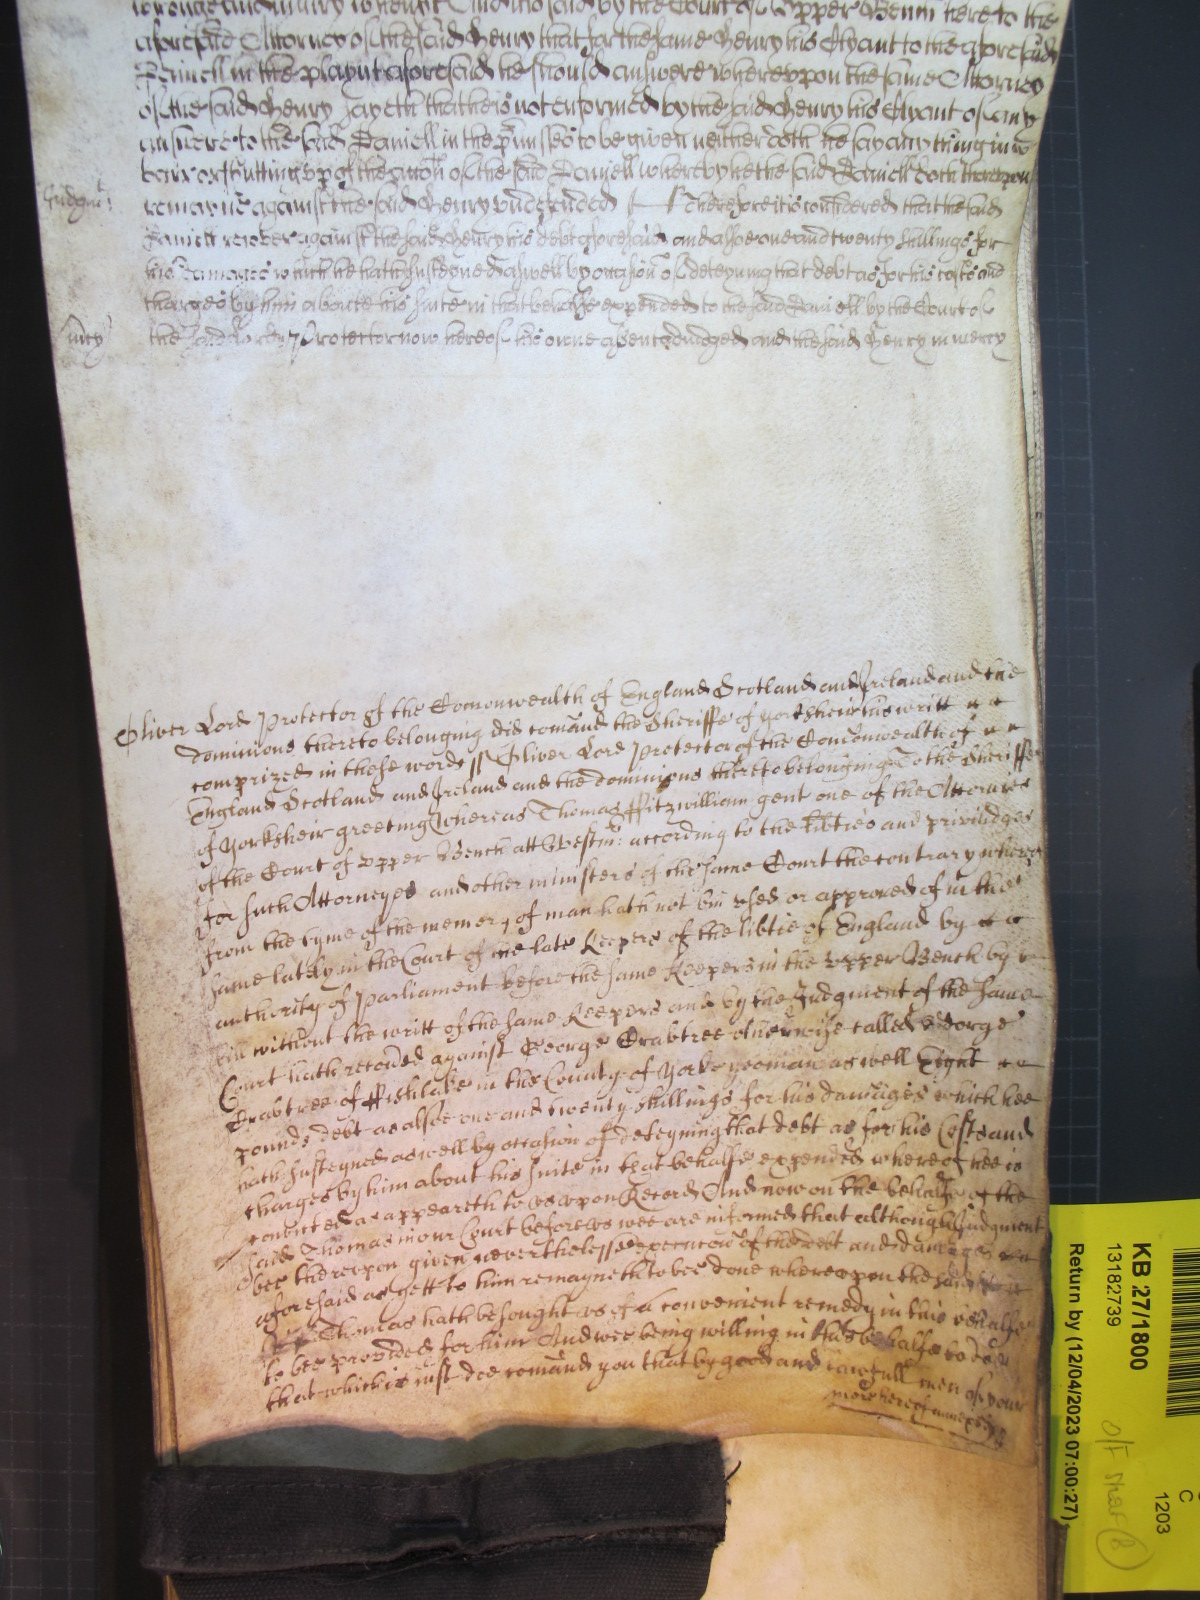 wronge and iniury whereupon And it is said by the Court of Upper Bench here to the
aforesaid Attorney of the said Henry that for the same Henry his Clyant to the aforesaid
Daniell in the playnt aforesaid he should answere whereupon the same Attorney
of the said Henry sayeth that he is not enformed by the said Henry his Clyant of any
answere to the said Daniell in the p̄misses to be given neither doth he say any thing in
barr or cutting up of the accōn of the said Daniell whereby he the said Daniell doth thereupon
remayne against the said Henry undefended Therefore it is considered that the said
Judgmt
Daniell recover against the said Henry his debt aforesaid and alsoe one and twenty shillings for
his damages which he hath susteyned aswell by occasion of deteyning that debt as for his costs and
charges by him aboute his suite in that behalfe expended to the said Daniell by the Court of
the said Lord Protector now here of his owne assent adiudged and the said Henry in mercy
mcy
Oliver Lord Protector of the Comonwealth of England Scotland and Ireland and the
dominions thereto belonging did comand the Sheriffe of Yorksheir his writt
comprized in these words Oliver Lord Protector of the Comonwealth of
England Scotland and Ireland and the dominions thereto belonging To the Sheriffe
of Yorksheir greeting Whereas Thomas Ffitzwilliam gent one of the Attorneys
of the Court of Upper Bench att Westmr according to the lib̄ties and priviledges
for such Attorneyes and other ministers of the same Court the contrary whereof
from the tyme of the memory of man hath not bin used or approved of in the
same lately in the Court of the late Keepers of the lib̄tie of England by
authority of Parliament before the same Keepers in the Upper Bench by
bill without the writt of the same Keepers and by the Judgment of the same
Court hath recoūed against George Crabtree otherwise called George
Crabtree of Ffishlake in the County of York yeoman aswell Eight
pounds debt as alsoe one and twenty shillings for his damages which hee
hath susteyned aswell by occasion of deteyning that debt as for his Costs and
charges by him about his suite in that behalfe expended whereof hee is
convicted as appeareth to us upon Record And now on the behalfe of the
said Thomas in our Court before us wee are informed that although Judgment
bee thereupon given neverthelesse execucōn of the debt and damages
aforesaid as yett to him remayneth to bee done whereupon the said
Thomas hath besought us of a convenient remedy in this behalfe
to bee provided for him And wee being willing in this behalfe to doe
that which is iust doe comand you that by good and lawfull men of your
more hereof annexed
KB 27/1800
13182739
Return by (12/04/2023 07:00:27)
C
1203